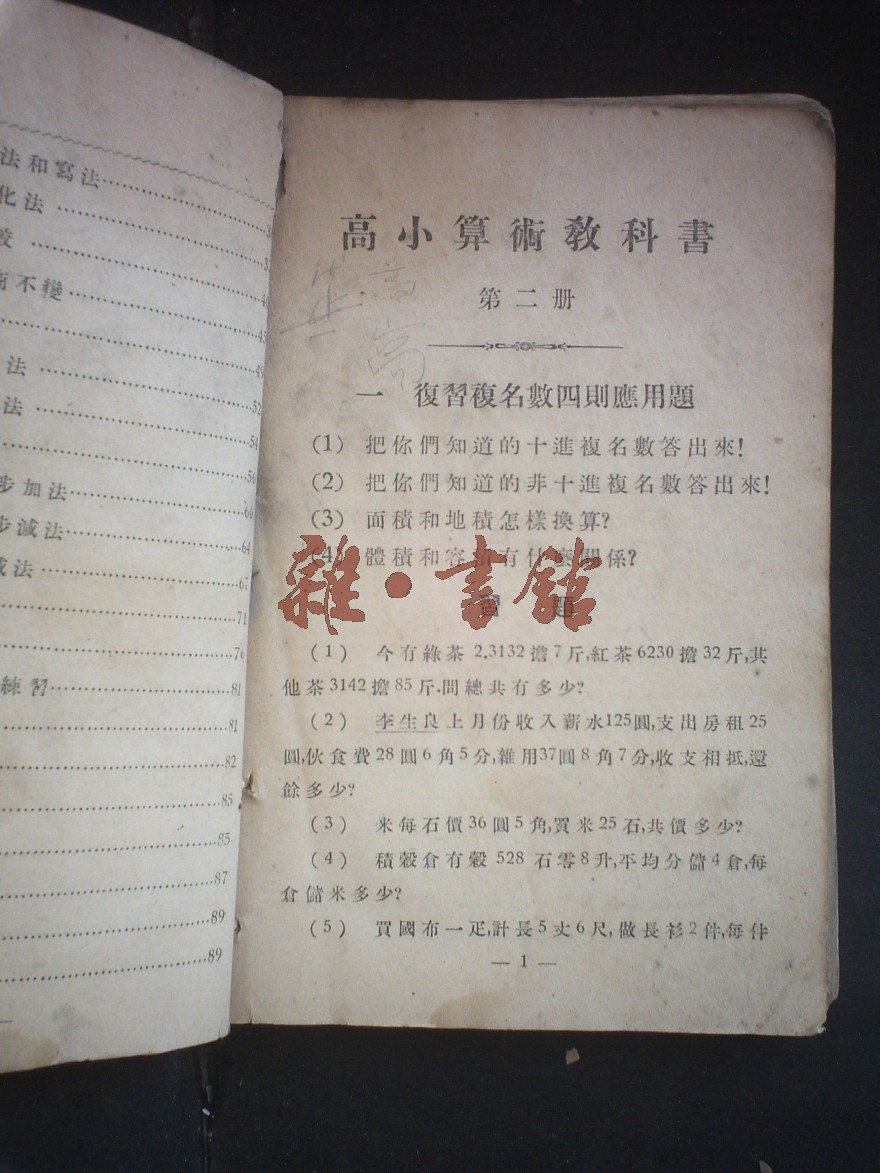 法和寫法
化法
較
而不變
法
法
步加法
步減法
減法
練習
37
40
45
49
52
54
56
60
64
67
71
76
81
81
82
85
85
87
89
89
高小算術教科書
第二册
高
高
一 復習複名數四則應用題
(1) 把你們知道的十進複名數答出來!
(2) 把你們知道的非十進複名數答出來!
(3) 面積和地積怎樣換算?
(4) 體積和容積有什麼關係?
雜·書館
習 題
(1) 今有綠茶 2,3132擔7斤,紅茶6230擔32斤,其
他茶3142擔85斤.問總共有多少?
(2) 李生良上月份收入薪水125圓,支出房租25
圓,伙食費28圓6角5分,雜用37圓8角7分,收支相抵,還
餘多少?
(3) 米每石價36圓5角,買米25石,共價多少?
(4) 積穀倉有穀528石零8升,平均分儲4倉,每
倉儲米多少?
(5) 買國布一疋,計長5丈6尺,做長衫2件,每件
— 1 —